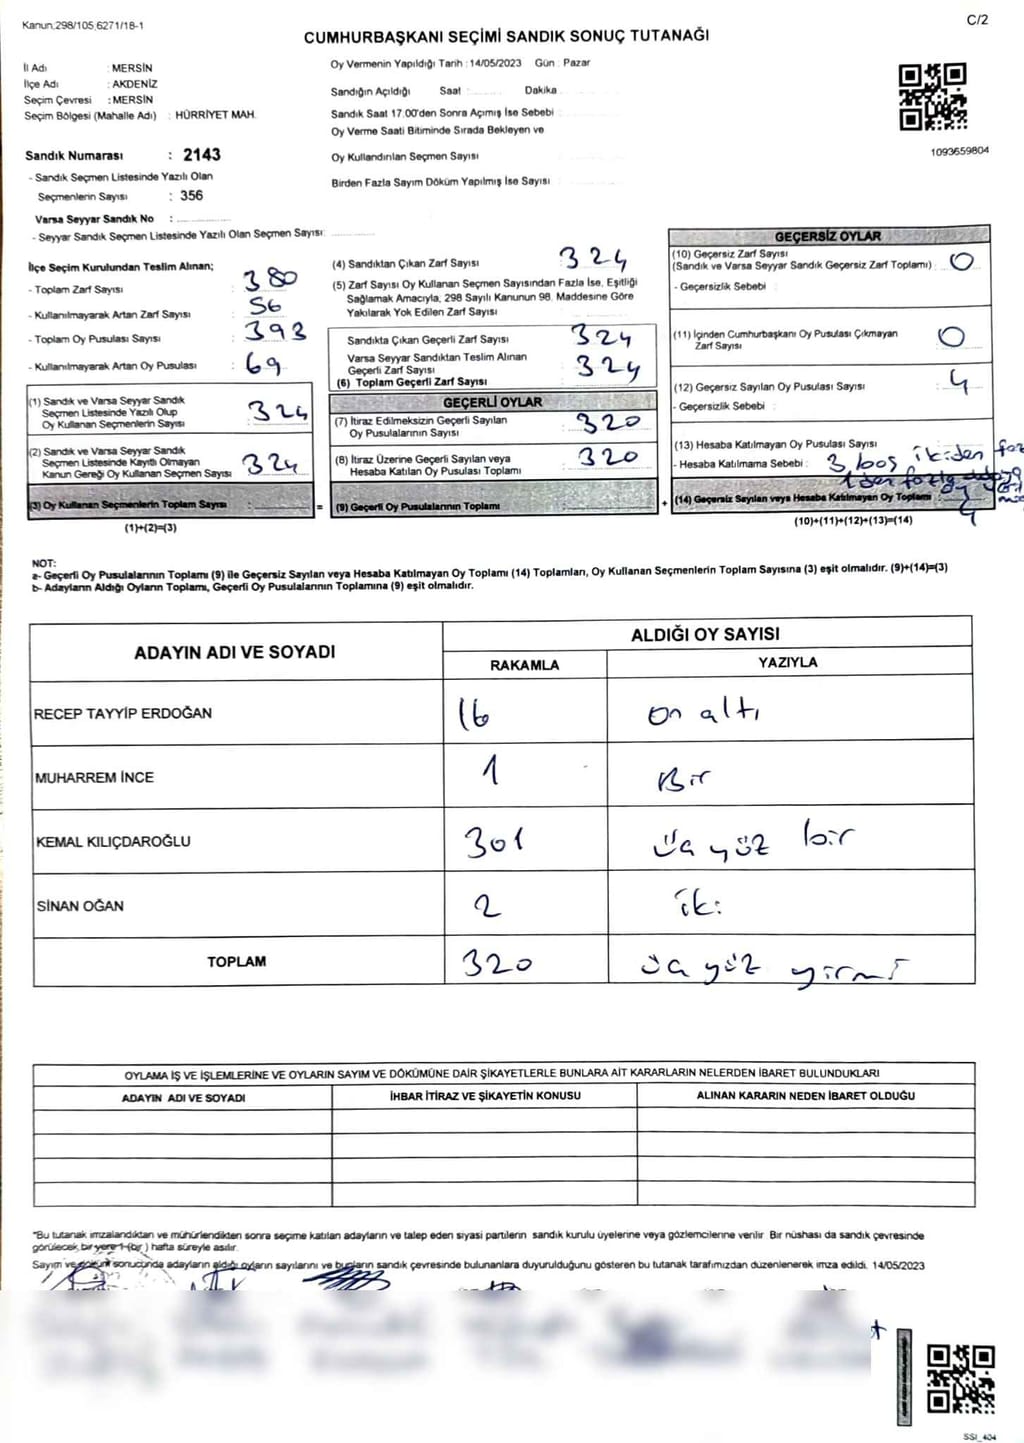 Kanun:298/105,6271/18-1
C/2
CUMHURBAŞKANI SEÇİMİ SANDIK SONUÇ TUTANAĞI
İl Adı : MERSİN
İlçe Adı : AKDENİZ
Seçim Çevresi : MERSİN
Seçim Bölgesi (Mahalle Adı) : HÜRRİYET MAH.
Sandık Numarası : 2143
- Sandık Seçmen Listesinde Yazılı Olan
Seçmenlerin Sayısı : 356
Varsa Seyyar Sandık No :
- Seyyar Sandık Seçmen Listesinde Yazılı Olan Seçmen Sayısı:
Oy Vermenin Yapıldığı Tarih : 14/05/2023 Gün : Pazar
Sandığın Açıldığı Saat : Dakika
Sandık Saat 17.00'den Sonra Açımış İse Sebebi :
Oy Verme Saati Bitiminde Sırada Bekleyen ve
Oy Kullandırılan Seçmen Sayısı
Birden Fazla Sayım Döküm Yapılmış İse Sayısı :
1093659804
İlçe Seçim Kurulundan Teslim Alınan;
- Toplam Zarf Sayısı : 380
- Kullanılmayarak Artan Zarf Sayısı : 56
- Toplam Oy Pusulası Sayısı : 393
- Kullanılmayarak Artan Oy Pusulası : 69
(1) Sandık ve Varsa Seyyar Sandık
Seçmen Listesinde Yazılı Olup
Oy Kullanan Seçmenlerin Sayısı : 324
(2) Sandık ve Varsa Seyyar Sandık
Seçmen Listesinde Kayıtlı Olmayan
Kanun Gereği Oy Kullanan Seçmen Sayısı : 324
(3) Oy Kullanan Seçmenlerin Toplam Sayısı :
(1)+(2)=(3)
(4) Sandıktan Çıkan Zarf Sayısı : 324
(5) Zarf Sayısı Oy Kullanan Seçmen Sayısından Fazla İse, Eşitliği
Sağlamak Amacıyla, 298 Sayılı Kanunun 98. Maddesine Göre
Yakılarak Yok Edilen Zarf Sayısı :
Sandıkta Çıkan Geçerli Zarf Sayısı : 324
Varsa Seyyar Sandıktan Teslim Alınan
Geçerli Zarf Sayısı : 324
(6) Toplam Geçerli Zarf Sayısı
GEÇERLİ OYLAR
(7) İtiraz Edilmeksizin Geçerli Sayılan
Oy Pusulalarının Sayısı : 320
(8) İtiraz Üzerine Geçerli Sayılan veya
Hesaba Katılan Oy Pusulası Toplamı : 320
= (9) Geçerli Oy Pusulalarının Toplamı
GEÇERSİZ OYLAR
(10) Geçersiz Zarf Sayısı
(Sandık ve Varsa Seyyar Sandık Geçersiz Zarf Toplamı) : 0
- Geçersizlik Sebebi :
(11) İçinden Cumhurbaşkanı Oy Pusulası Çıkmayan
Zarf Sayısı : 0
(12) Geçersiz Sayılan Oy Pusulası Sayısı : 4
- Geçersizlik Sebebi :
(13) Hesaba Katılmayan Oy Pusulası Sayısı :
- Hesaba Katılmama Sebebi : 3 boş ikiden
+ (14) Geçersiz Sayılan veya Hesaba Katılmayan Oy Toplamı : 4
(10)+(11)+(12)+(13)=(14)
NOT:
a- Geçerli Oy Pusulalarının Toplamı (9) ile Geçersiz Sayılan veya Hesaba Katılmayan Oy Toplamı (14) Toplamları, Oy Kullanan Seçmenlerin Toplam Sayısına (3) eşit olmalıdır. (9)+(14)=(3)
b- Adayların Aldığı Oyların Toplamı, Geçerli Oy Pusulalarının Toplamına (9) eşit olmalıdır.
ADAYIN ADI VE SOYADI
ALDIĞI OY SAYISI
RAKAMLA YAZIYLA
RECEP TAYYİP ERDOĞAN 16 on altı
MUHARREM İNCE 1 Bir
KEMAL KILIÇDAROĞLU 301 üç yüz bir
SİNAN OĞAN 2 iki
TOPLAM 320 üç yüz yirmi
OYLAMA İŞ VE İŞLEMLERİNE VE OYLARIN SAYIM VE DÖKÜMÜNE DAİR ŞİKAYETLERLE BUNLARA AİT KARARLARIN NELERDEN İBARET BULUNDUKLARI
ADAYIN ADI VE SOYADI İHBAR İTİRAZ VE ŞİKAYETİN KONUSU ALINAN KARARIN NEDEN İBARET OLDUĞU
*Bu tutanak imzalandıktan ve mühürlendikten sonra seçime katılan adayların ve talep eden siyasi partilerin sandık kurulu üyelerine veya gözlemcilerine verilir. Bir nüshası da sandık çevresinde
görülecek bir yere 1 (bir) hafta süreyle asılır.
Sayım ve döküm sonucunda adayların aldığı oyların sayılarını ve bunların sandık çevresinde bulunanlara duyurulduğunu gösteren bu tutanak tarafımızdan düzenlenerek imza edildi. 14/05/2023
SSI_404